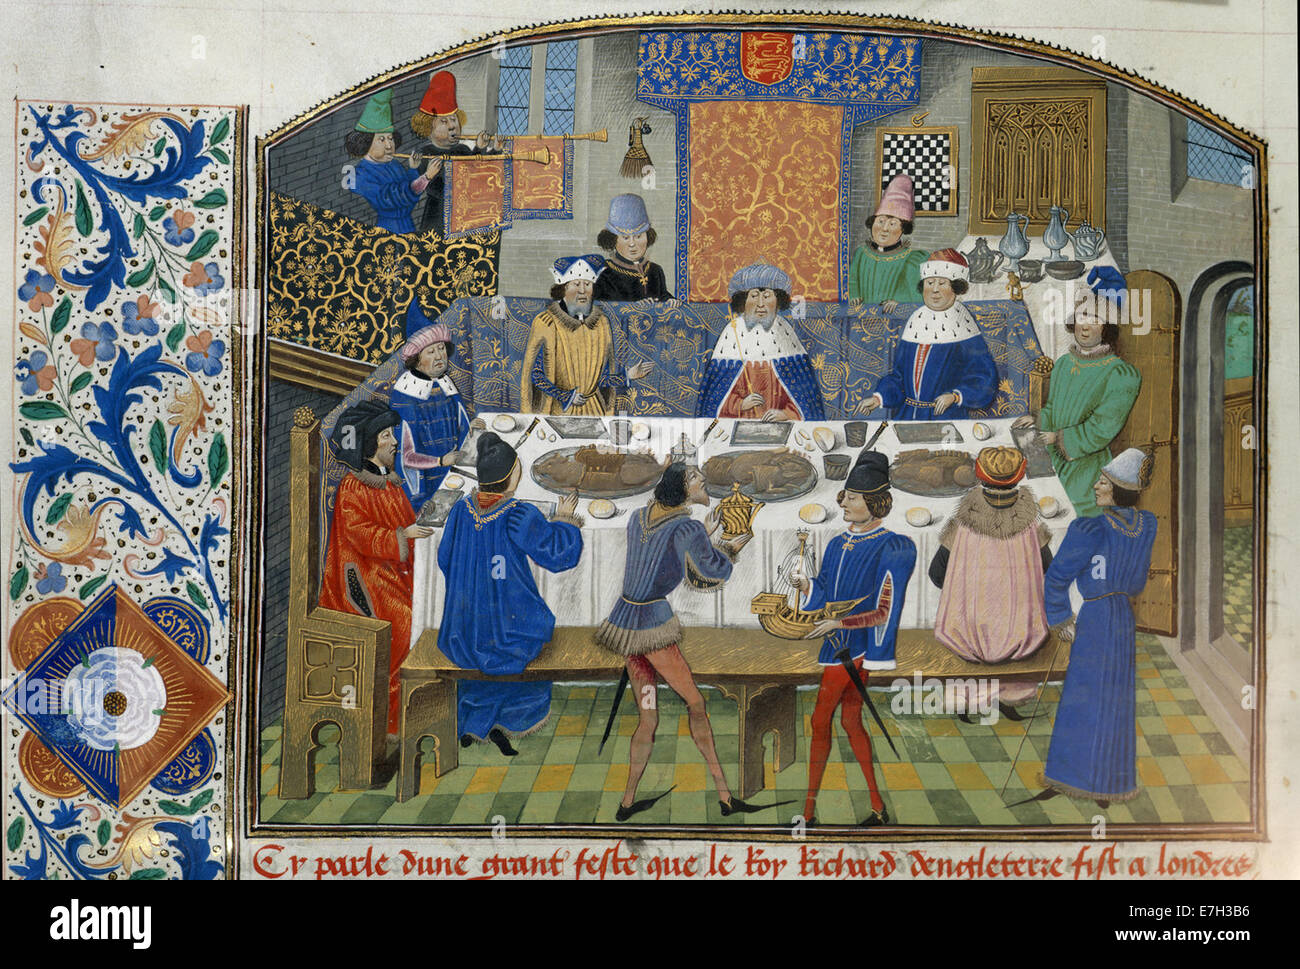 Cy parle dune grant feste que le Roy Richard dengleterre fist a londres
alamy
Image ID: E7H3B6
www.alamy.com